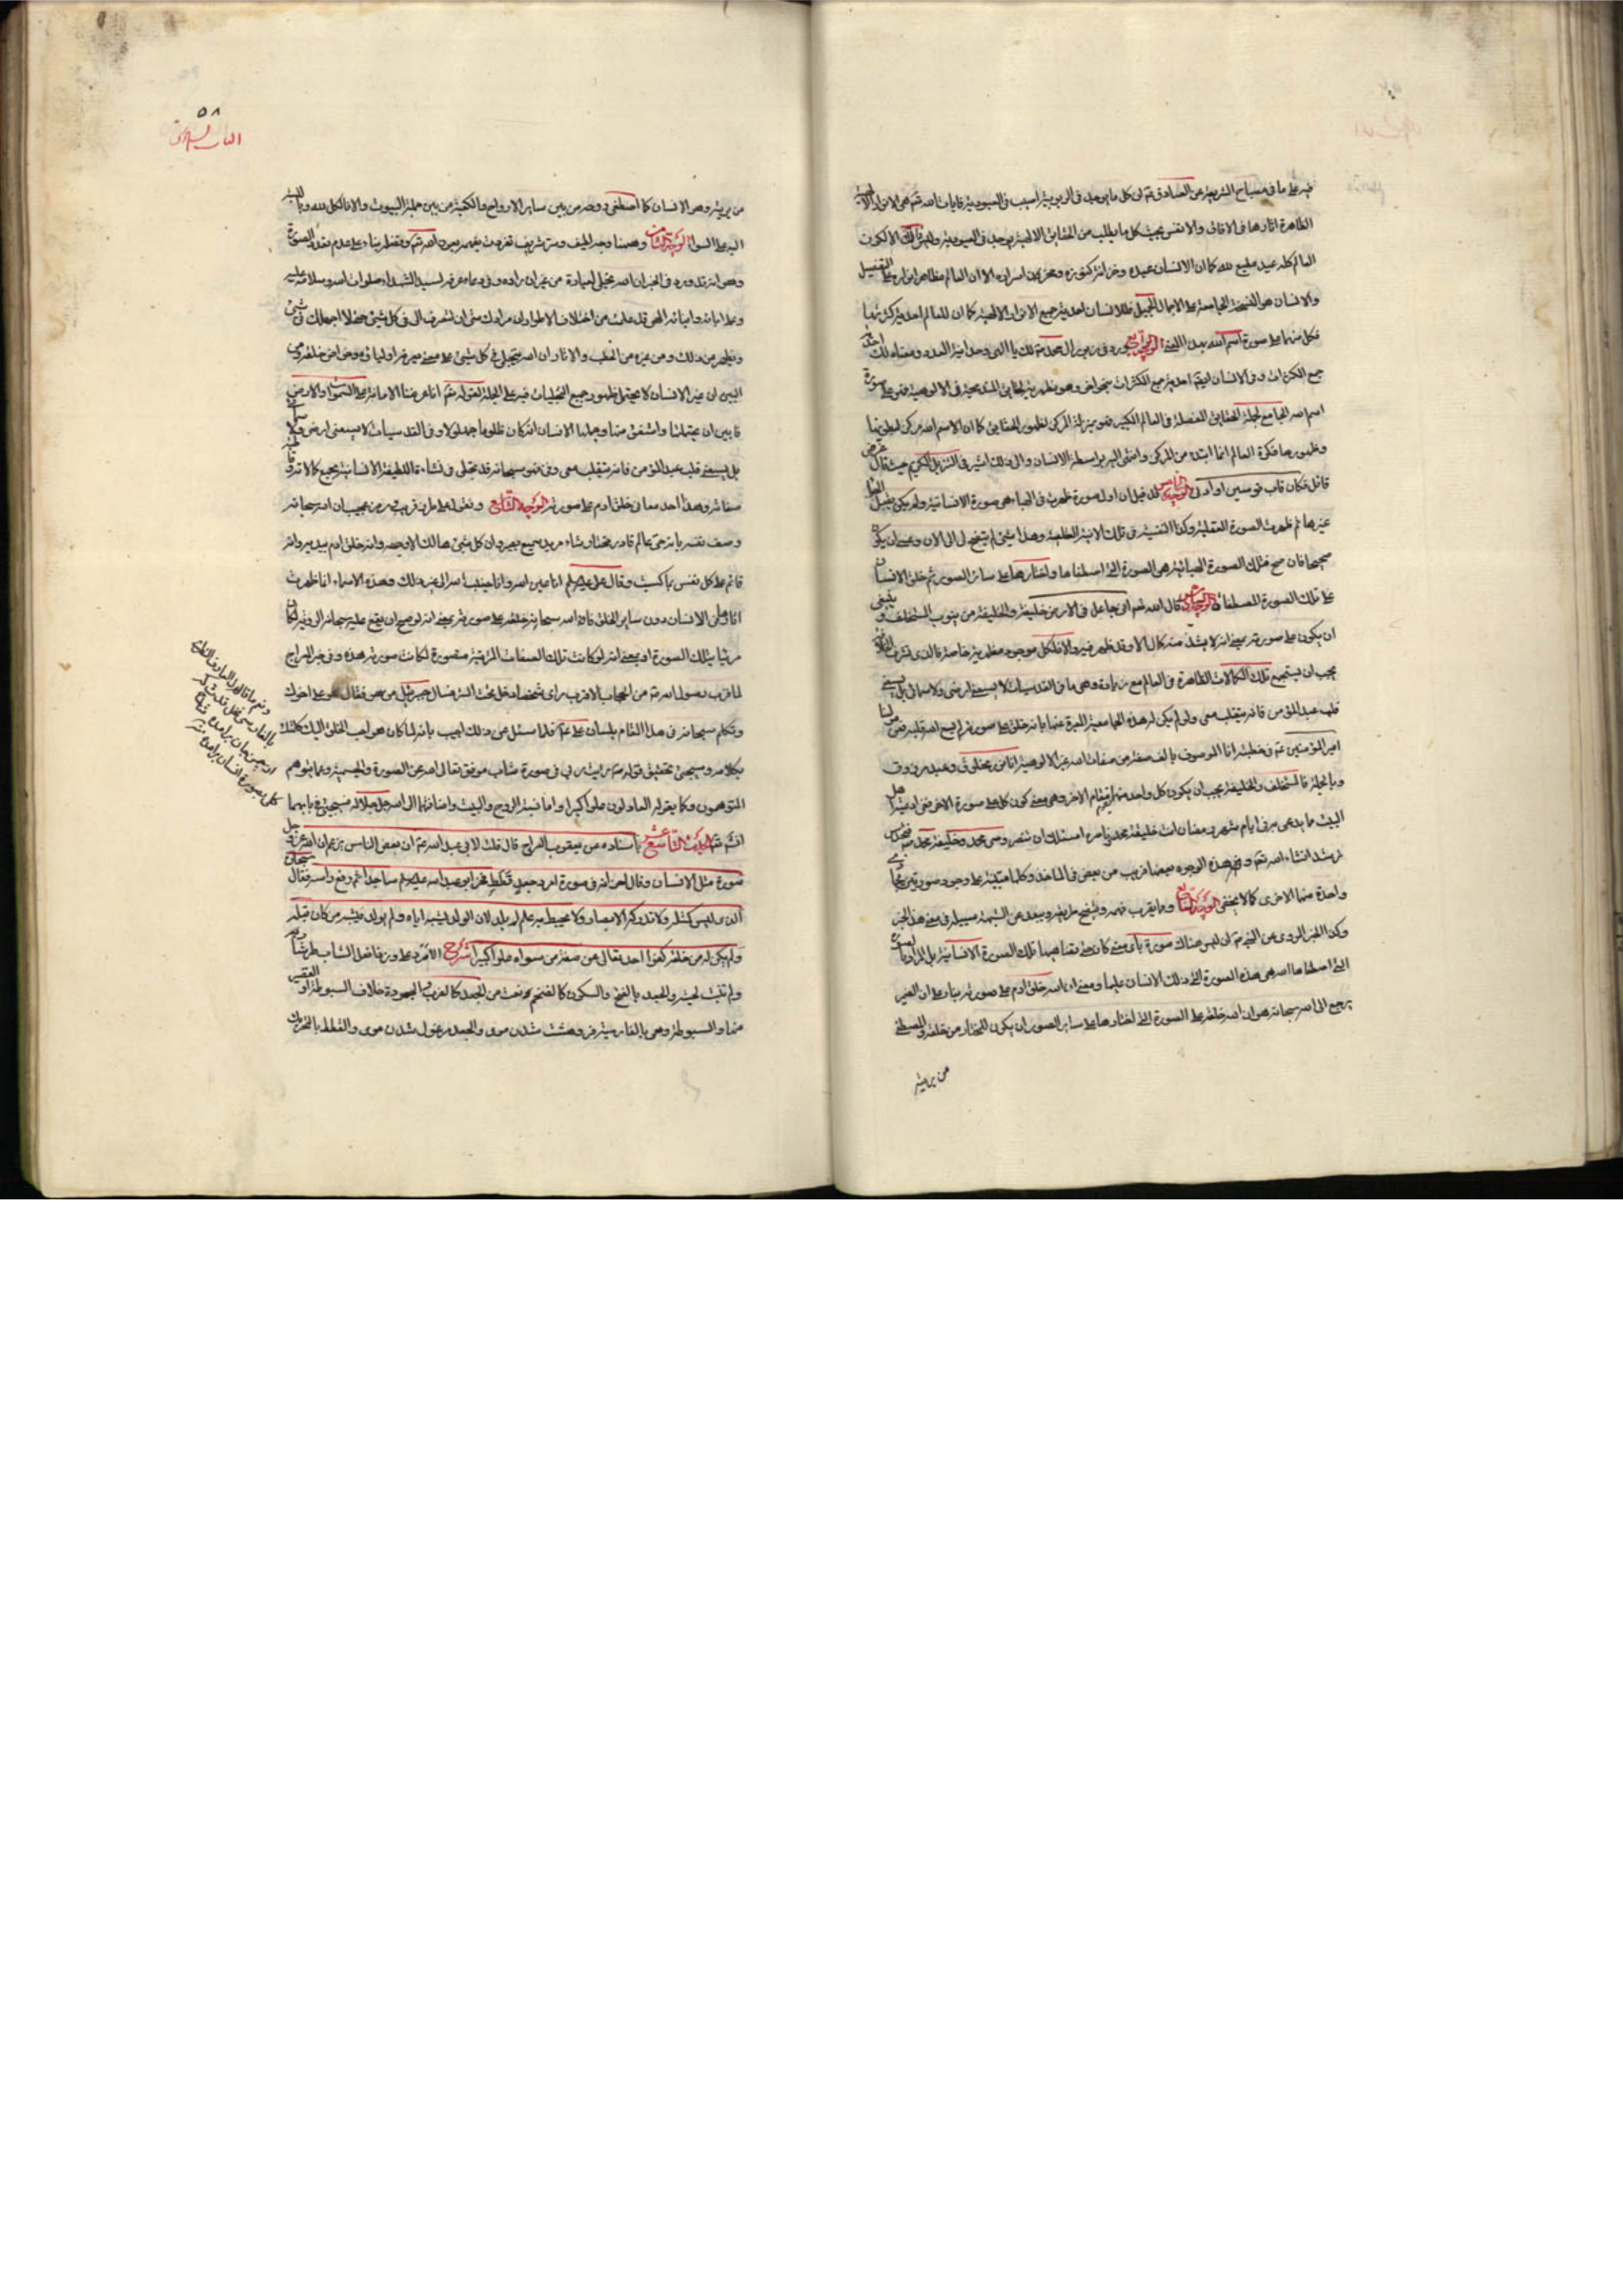 فيه على ما في مصباح الشريعة عن الصادق ان كل ما يوجد في الربوبية اصيب في العبودية فايات الله هي الانوار الالهية
الظاهرة اثارها في الافاق والانفس بحيث كل ما يطلب من الحقايق الالهية يوجد في العبودية وليس ذلك الا لكون
العالم كله عبد مطيع لله كما ان الانسان عبده وخزانة كنوزه ومخزن اسراره الا ان العالم مظاهر انواره على التفصيل
والانسان هو النسخة الجامعة على الاجمال الجميل فللانسان احدية جميع الانوار الالهية كما ان للعالم احدية كثرتها
فكل منهما على صورة اسم الله بهذا المعنى الوجه الرابع ورد في زبور ال محمد لك يا الهي وحدانية العدد ومعناه لك احدية
جمع الكثرات وفي الانسان ايضا احدية جمع الكثرات بنحو اخر وهو مظهرية الحقايق المندمجة في الالوهية فهو على صورة
اسم الله الجامع لجملة الحقايق المفصلة في العالم الكبير فهو بمنزلة المركز لظهور الحقايق كما ان الاسم الله مركز لبطونها
وظهورها فكرة العالم انما ابتدء من المركز وانتهى اليه بواسطة الانسان والى ذلك اشير في التنزيل الكريم حيث قال عز من
قائل فكان قاب قوسين او ادنى الوجه الخامس قد قيل ان اول صورة ظهرت في الهباء هي صورة الانسانية ولم يكن يقبل الهباء
غيرها ثم ظهرت الصورة العقلية وكذا النفسية في تلك الابنية الظلمية وهذا شيء لم يتضح لي الى الان وعسى ان يكون
صحيحا فان صح فتلك الصورة الهبائية هي الصورة التي اصطفاها واختارها على سائر الصور ثم خلق الانسان
على تلك الصورة المصطفاة الوجه السادس قال الله اني جاعل في الارض خليفة والخليفة من ينوب المستخلف وينبغي
ان يكون على صورته بمعنى انه لا يشذ منه كمال الا وقد ظهر فيه والا فلكل موجود مظهرية خاصة فالذي لشرف الخلافة
يجب ان يستجمع تلك الكمالات الظاهرة في العالم مع زيادة وهي ما في القدسيات لا يسعني ارضي ولا سمائي بل يسعني
قلب عبدي المؤمن فانه يتقلب معي ولو لم يكن له هذه الجامعية المعبرة عنها بانه خلق على صورته لم يسع الله قلبه فعن مولينا
امير المؤمنين في خطبته انا الموصوف بالف صفة من صفات الله غير الالوهية انا نور مخلوق وعبد مرزوق
وبالجملة فالمستخلف والخليفة يجب ان يكون كل واحد منهما يقوم مقام الاخر وهي معنى كون كل على صورة الاخر ففي ادعية اهل
البيت ما يدعى به في ايام شهر رمضان انت خليفة محمد وناصره اسئلك ان تنصر وصي محمد وخليفة محمد
ترشد انشاء الله وفي هذه الوجوه بعضها قريب من بعض في الماخذ وكلها مبتنية على وجود صورتين يحاكي
واحدة منهما الاخرى كما لا يخفى الوجه السابع وهو يقرب فهمه ويتضح طريقه ويبعد عن الشبهة سبيله في معنى هذا الخبر
وكذا الخبر المروي عن النبي ان ليس هناك صورة باي معنى كان حتى يضاهيها تلك الصورة الانسانية بل المراد بالصورة
التي اصطفاها الله هي هذه الصورة التي ذلك الانسان عليها ومعنى ان الله خلق ادم على صورته بناء على ان الضمير
يرجع الى الله سبحانه هو ان الله خلقه على الصورة التي اختارها على ساير الصور ان يكون المختار من خلقه والمصطفى
من بريته
٥٨
من بريته وهو الانسان كما اصطفى روحه من بين ساير الارواح والكعبة من بين جملة البيوت والا فالكل لله وبالنسبة
اليه على السواء الوجه الثامن وههنا وجه لطيف وسر شريف تفردت بفهمه بعون الله وفضله بناء على عدم تقدير الصورة
وهو انه قد ورد في الخبر ان الله تجلى لعباده من غير ان راوه وفي دعاء عرفة لسيد الشهداء صلوات الله وسلامه عليه
وعلى ابائه وابنائه الهي قد علمت من اختلاف الاطوار ان مرادك مني ان تتعرف الي في كل شيء حتى لا اجهلك في شيء
ويظهر من ذلك ومن غيره من الخطب والاثار ان الله يتجلى في كل شيء على معنى يعرفه اولياؤه وخواص خلقه ومن
البين ان غير الانسان لا يحتمل ظهور جميع التجليات فيه على الجملة لقوله انا عرضنا الامانة على السموات والارض
فابين ان يحملنها واشفقن منها وحملها الانسان انه كان ظلوما جهولا وفي القدسيات لا يسعني ارضي ولا سمائي
بل يسعني قلب عبدي المؤمن فانه يتقلب معي وفي فهو سبحانه قد تجلى في نشاءة اللطيفة الانسانية بجميع كمالاته وقاطبة
صفاته وهذا احد معاني خلق ادم على صورته الوجه التاسع ونعني له على ما من قريب ومن عجيب ان الله سبحانه
وصف نفسه بانه حي عالم قادر مختار شاء مريد سميع بصير وان كل شيء هالك الا وجهه وانه خلق ادم بيديه وانه
قائم على كل نفس بما كسبت وقال علي عليه السلام انا عين الله وانا جنب الله الى غير ذلك وهذه الاسماء انما ظهرت
اثارها في الانسان دون ساير الخلق فاذا الله سبحانه خلقه على صورته بمعنى انه لو صح ان يقع عليه سبحانه الرؤية لكان
مرئيا بتلك الصورة او بمعنى انه لو كانت تلك الصفات المرئية متصورة لكانت صورته هذه وفي خبر المعراج
لما قرب رسول الله من الحجاب الاقرب راى شخصا دخل تحت الستر فسال جبرئيل من هو فقال هو علي اخوك
وتكلم سبحانه في هذا المقام بلسان علي فلما سئل عن ذلك اجيب بانه لما كان هو احب الخلق اليك كلمتك
بكلامه وسيجئ تحقيق قوله رايت ربي في صورة شاب موفق تعالى الله عن الصورة والجسمية وعما يتوهم
المتوهمون وكما يقوله العادلون علوا كبيرا واما نسبة الروح والبيت واضافتهما الى الله جل جلاله فسيجئ في بابهما
انشاء الله الحديث التاسع عشر باسناده عن يعقوب السراج قال قلت لابي عبد الله ان بعض الناس يزعم ان الله عز وجل
صورة مثل الانسان وقال اخر انه في صورة امرد جعد قطط فخر ابو عبد الله عليه السلام ساجدا ثم رفع راسه فقال سبحان
الذي ليس كمثله ولا تدركه الابصار ولا يحيط به علم لم يلد لان الولد يشبه اباه ولم يولد فيشبه من كان قبله
ولم يكن له من خلقه كفوا احد تعالى عن صفة من سواه علوا كبيرا شرح الامرد على وزن افعل الشاب طر شاربه
ولم تنبت لحيته والجعد بالفتح والسكون كالفخم نعت من الجعد كالغرب والجعودة خلاف السبوطة او القصير
منها والسبوطة وهي بالفارسية فروهشته شدن موى والجعد مرغول شدن موى والقطط بالتحريك